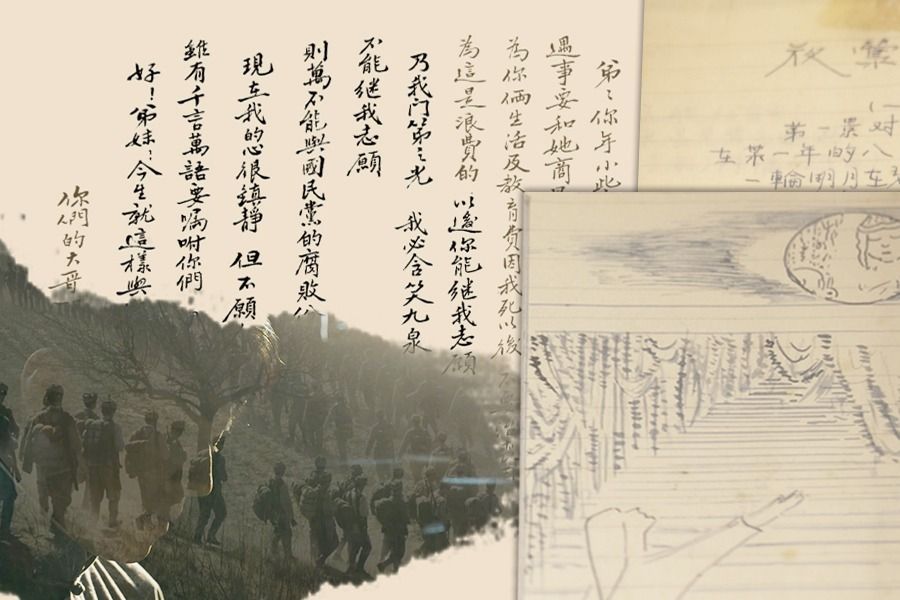 弟:你年小些
遇事要和她商
為你倆生活及教育費因我死以後
為這是浪費的 以後你能繼我志願
乃我門第之光 我必含笑九泉
不能繼我志願
則萬不能與國民黨的腐敗
現在我的心很鎮靜 但不願
雖有千言萬語要囑咐你們
好!弟妹:今生就這樣與
你們的大哥
第一景对
在第一年的八
一輪明月在